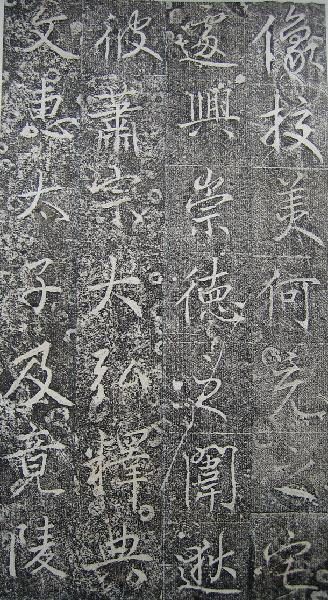 像校美何充之宅
遽興崇德之闡逖
彼蕭宗大弘釋典
文惠太子及竟陵